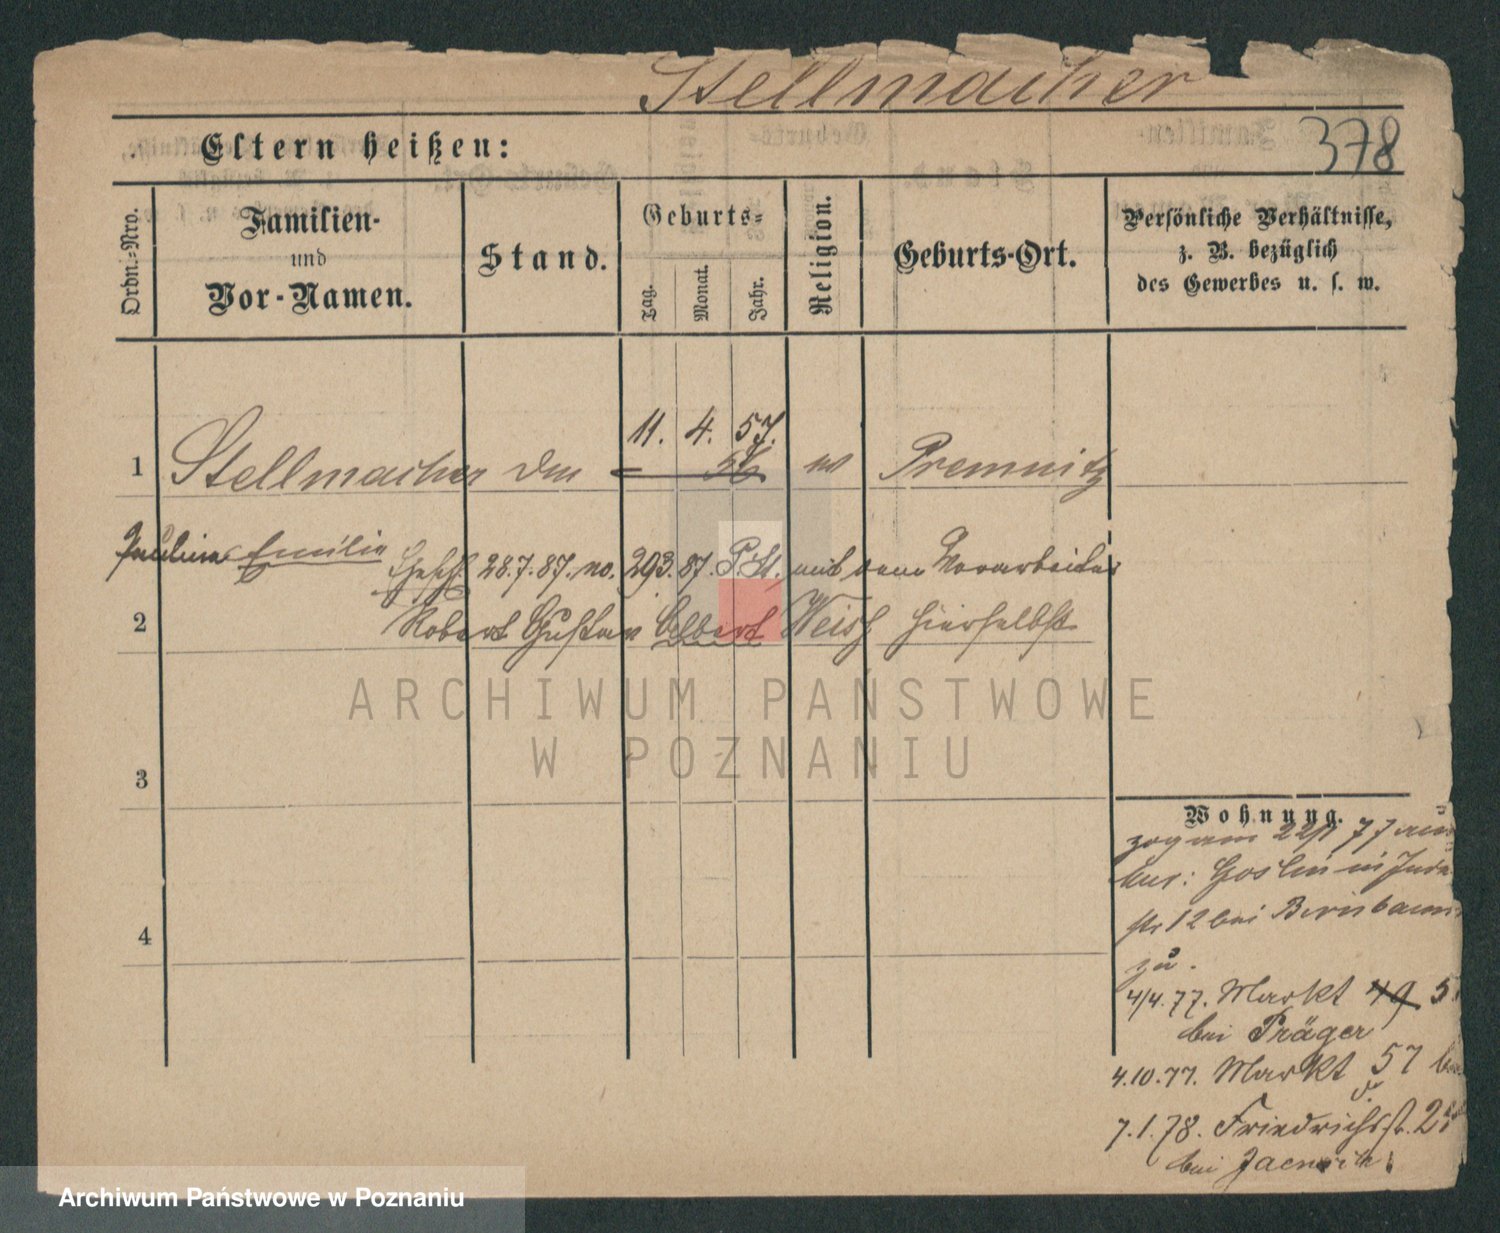 Stellmacher
Eltern heißen:
378
Ordn.-Nro.
Familien-
und
Vor-Namen.
Stand.
Geburts-
Tag.
Monat.
Jahr.
Religion.
Geburts-Ort.
Persönliche Verhältnisse,
z. B. bezüglich
des Gewerbes u. s. w.
11. 4. 57.
1 Stellmacher 56 Premnitz
Pauline Emilie
28.7.87. no. 293.87. P. St. mit dem Vorarbeiter
2 Robert Gustav Albert Weiss hierselbst
ARCHIWUM PAŃSTWOWE
W POZNANIU
3
4
Wohnung.
zog am 22/1 77 aus
Mur: Goslin in Juden
str 12 bei Birnbaum
zu.
4/4. 77. Markt 49 5
bei Präger
4.10.77. Markt 57
7.1.78. Friedrichsstr. 2
bei
Archiwum Państwowe w Poznaniu